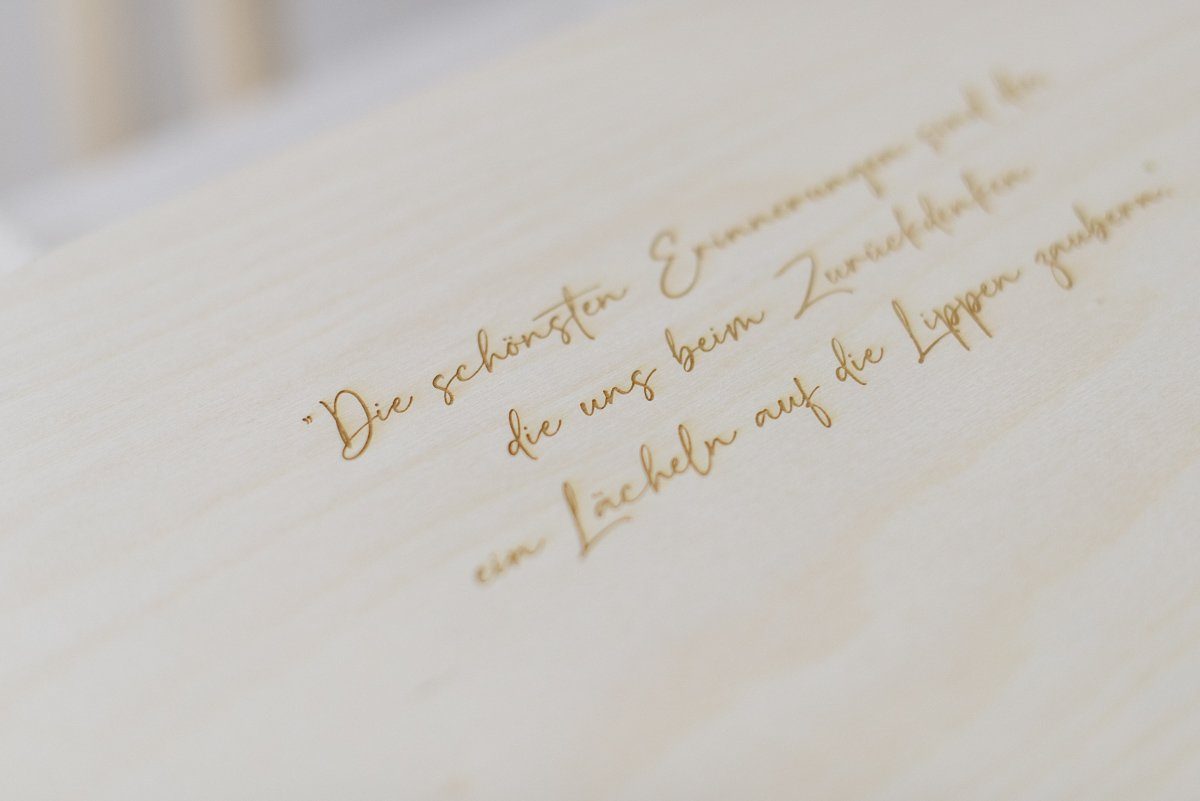 "Die schönsten Erinnerungen sind die
die uns beim Zurückdenken
ein Lächeln auf die Lippen zaubern."